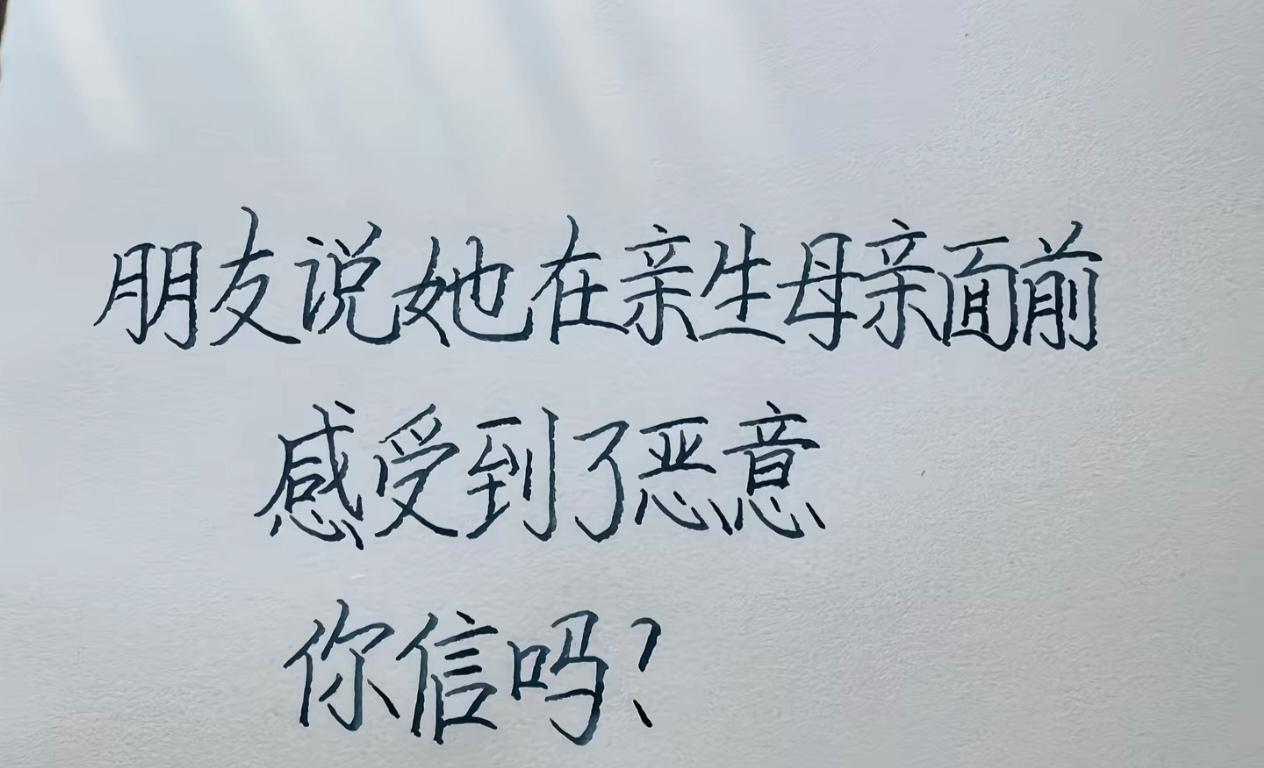 朋友说她在亲生母亲面前
感受到了恶意
你信吗？